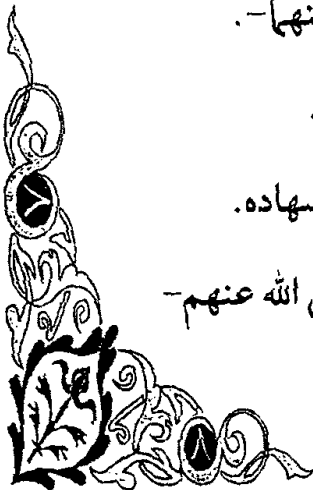 نهما-.
.
سهاده.
الله عنهم-